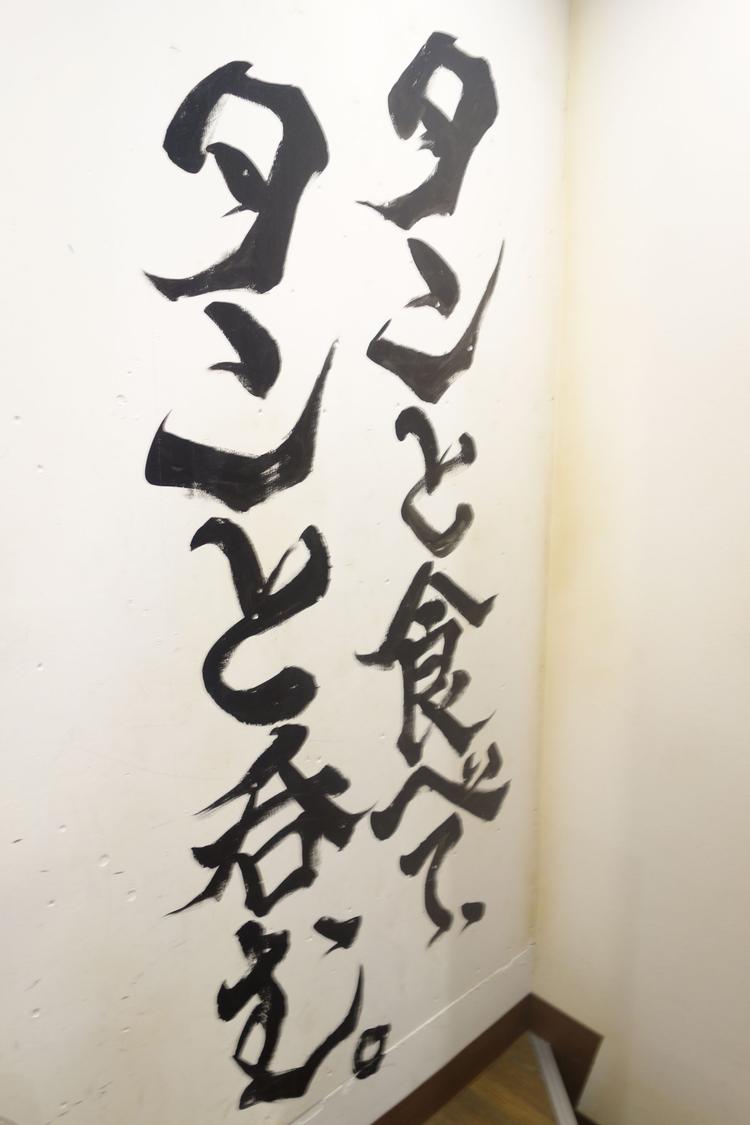 タンと食べて
タンと呑む。